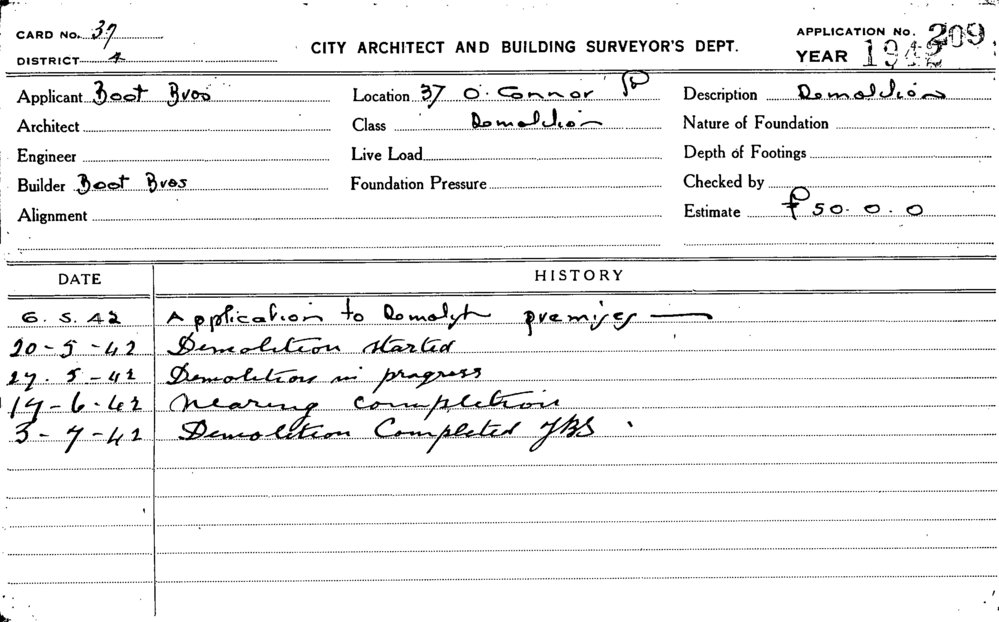 CARD No. 37
DISTRICT 4
CITY ARCHITECT AND BUILDING SURVEYOR'S DEPT.
APPLICATION No. 209
YEAR 1942
Applicant Boot Bros Location 37 O'Connor St Description Demolition
Architect Class Demolition Nature of Foundation
Engineer Live Load Depth of Footings
Builder Boot Bros Foundation Pressure Checked by
Alignment Estimate £50.0.0
DATE HISTORY
6.5.42 Application to Demolish premises
20-5-42 Demolition started
27.5-42 Demolition in progress
17-6-42 Nearing completion
3-7-42 Demolition Completed JBS